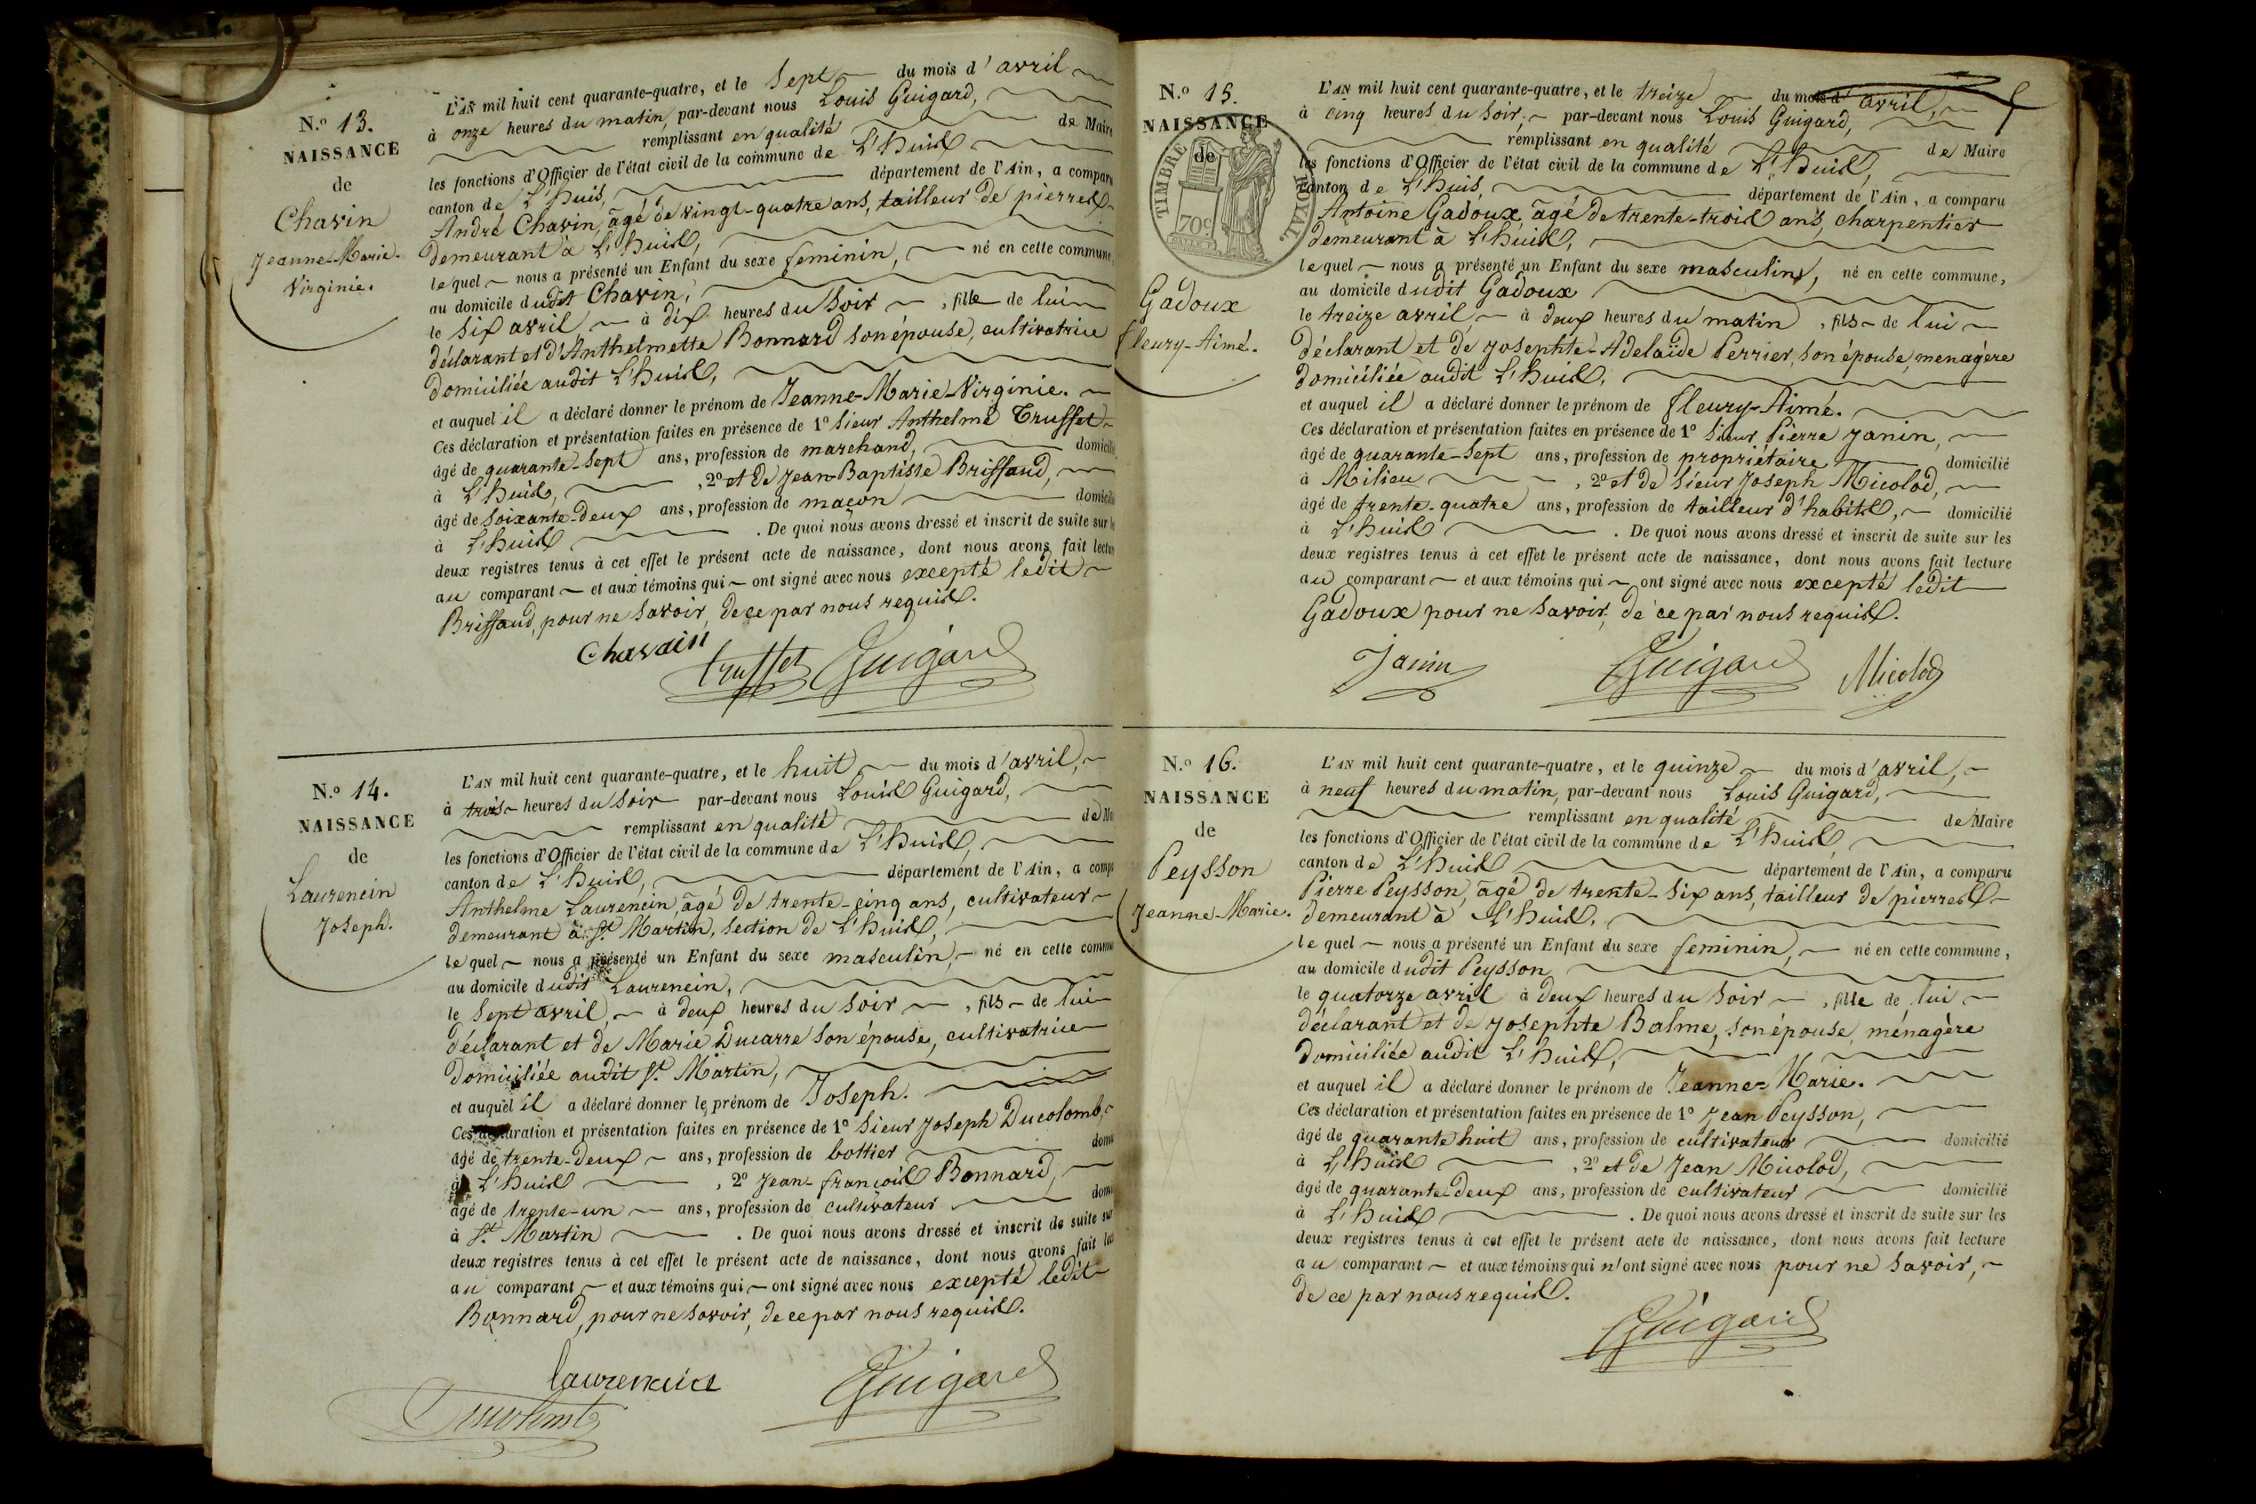 N.o 13.
NAISSANCE
de
Chavin
Jeanne-Marie-
Virginie.
L'AN mil huit cent quarante-quatre, et le sept du mois d'avril
à onze heures du matin, par-devant nous Louis Guigard,
remplissant en qualité de Maire
les fonctions d'Officier de l'état civil de la commune de L'huis
canton de L'huis, département de l'Ain, a comparu
André Chavin, âgé de vingt-quatre ans, tailleur de pierres
demeurant à L'huis,
lequel nous a présenté un Enfant du sexe feminin, né en cette commune,
au domicile dudit Chavin,
le six avril à dix heures du soir, fille de lui
déclarant et d'Anthelmette Bonnard son épouse, cultivatrice
domiciliée audit L'huis,
et auquel il a déclaré donner le prénom de Jeanne-Marie-Virginie.
Ces déclaration et présentation faites en présence de 1o sieur Anthelme Truffet
âgé de quarante-sept ans, profession de marchand, domicilié
à L'huis, , 2o et de Jean-Baptiste Briffaud,
âgé de soixante-deux ans, profession de maçon domicilié
à L'huis . De quoi nous avons dressé et inscrit de suite sur les
deux registres tenus à cet effet le présent acte de naissance, dont nous avons fait lecture
au comparant et aux témoins qui ont signé avec nous excepté ledit
Briffaud, pour ne savoir, de ce par nous requis.
Chavain
truffet Guigard
N.o 14.
NAISSANCE
de
Laurencin
Joseph.
L'AN mil huit cent quarante-quatre, et le huit du mois d'avril,
à trois heures du soir par-devant nous Louis Guigard,
remplissant en qualité de Ma
les fonctions d'Officier de l'état civil de la commune de L'huis,
canton de L'huis, département de l'Ain, a compa
Anthelme Laurencin, âgé de trente-cinq ans, cultivateur
demeurant à St. Martin, section de L'huis,
lequel nous a présenté un Enfant du sexe masculin, né en cette commu
au domicile dudit Laurencin,
le sept avril, à deux heures du soir, fils de lui
déclarant et de Marie Ducarre son épouse, cultivatrice
domiciliée audit St. Martin,
et auquel il a déclaré donner le prénom de Joseph.
Ces déclaration et présentation faites en présence de 1o sieur Joseph Ducolomb,
âgé de trente-deux ans, profession de bottier domi
à L'huis , 2o Jean-françois Bonnard,
âgé de trente-un ans, profession de cultivateur domi
à St. Martin . De quoi nous avons dressé et inscrit de suite sur
deux registres tenus à cet effet le présent acte de naissance, dont nous avons fait lec
au comparant et aux témoins qui ont signé avec nous excepté ledit
Bonnard, pour ne savoir, de ce par nous requis.
laurencin
Guigard
Ducolomb
N.o 15.
NAISSANCE
de
TIMBRE ROYAL.
70c
Gadoux
fleury-Aimé.
L'AN mil huit cent quarante-quatre, et le treize du mois d'avril,
à cinq heures du soir, par-devant nous Louis Guigard,
remplissant en qualité de Maire
les fonctions d'Officier de l'état civil de la commune de L'huis,
canton de L'huis, département de l'Ain, a comparu
Antoine Gadoux, âgé de trente-trois ans, charpentier
demeurant à L'huis,
lequel nous a présenté un Enfant du sexe masculin, né en cette commune,
au domicile dudit Gadoux
le treize avril, à deux heures du matin, fils de lui
déclarant et de Josephte-Adelaïde Perrier, son épouse, menagère
domiciliée audit L'huis,
et auquel il a déclaré donner le prénom de fleury-Aimé.
Ces déclaration et présentation faites en présence de 1o sieur Pierre Janin,
âgé de quarante-sept ans, profession de propriétaire domicilié
à Milieu , 2o et de sieur Joseph Micolod,
âgé de trente-quatre ans, profession de tailleur d'habits, domicilié
à L'huis . De quoi nous avons dressé et inscrit de suite sur les
deux registres tenus à cet effet le présent acte de naissance, dont nous avons fait lecture
au comparant et aux témoins qui ont signé avec nous excepté ledit
Gadoux pour ne savoir, de ce par nous requis.
Janin Guigard Micolod
N.o 16.
NAISSANCE
de
Peysson
Jeanne-Marie.
L'AN mil huit cent quarante-quatre, et le quinze du mois d'avril,
à neuf heures du matin, par-devant nous Louis Guigard,
remplissant en qualité de Maire
les fonctions d'Officier de l'état civil de la commune de L'huis
canton de L'huis département de l'Ain, a comparu
Pierre Peysson, âgé de trente-six ans, tailleur de pierres
demeurant à L'huis,
lequel nous a présenté un Enfant du sexe feminin, né en cette commune,
au domicile dudit Peysson,
le quatorze avril à deux heures du soir, fille de lui
déclarant et de Josephte Balme, son épouse, ménagère
domiciliée audit L'huis,
et auquel il a déclaré donner le prénom de Jeanne-Marie.
Ces déclaration et présentation faites en présence de 1o Jean Peysson,
âgé de quarante huit ans, profession de cultivateur domicilié
à L'huis , 2o et de Jean Micolod,
âgé de quarante-deux ans, profession de cultivateur domicilié
à L'huis . De quoi nous avons dressé et inscrit de suite sur les
deux registres tenus à cet effet le présent acte de naissance, dont nous avons fait lecture
au comparant et aux témoins qui n'ont signé avec nous pour ne savoir,
de ce par nous requis.
Guigard